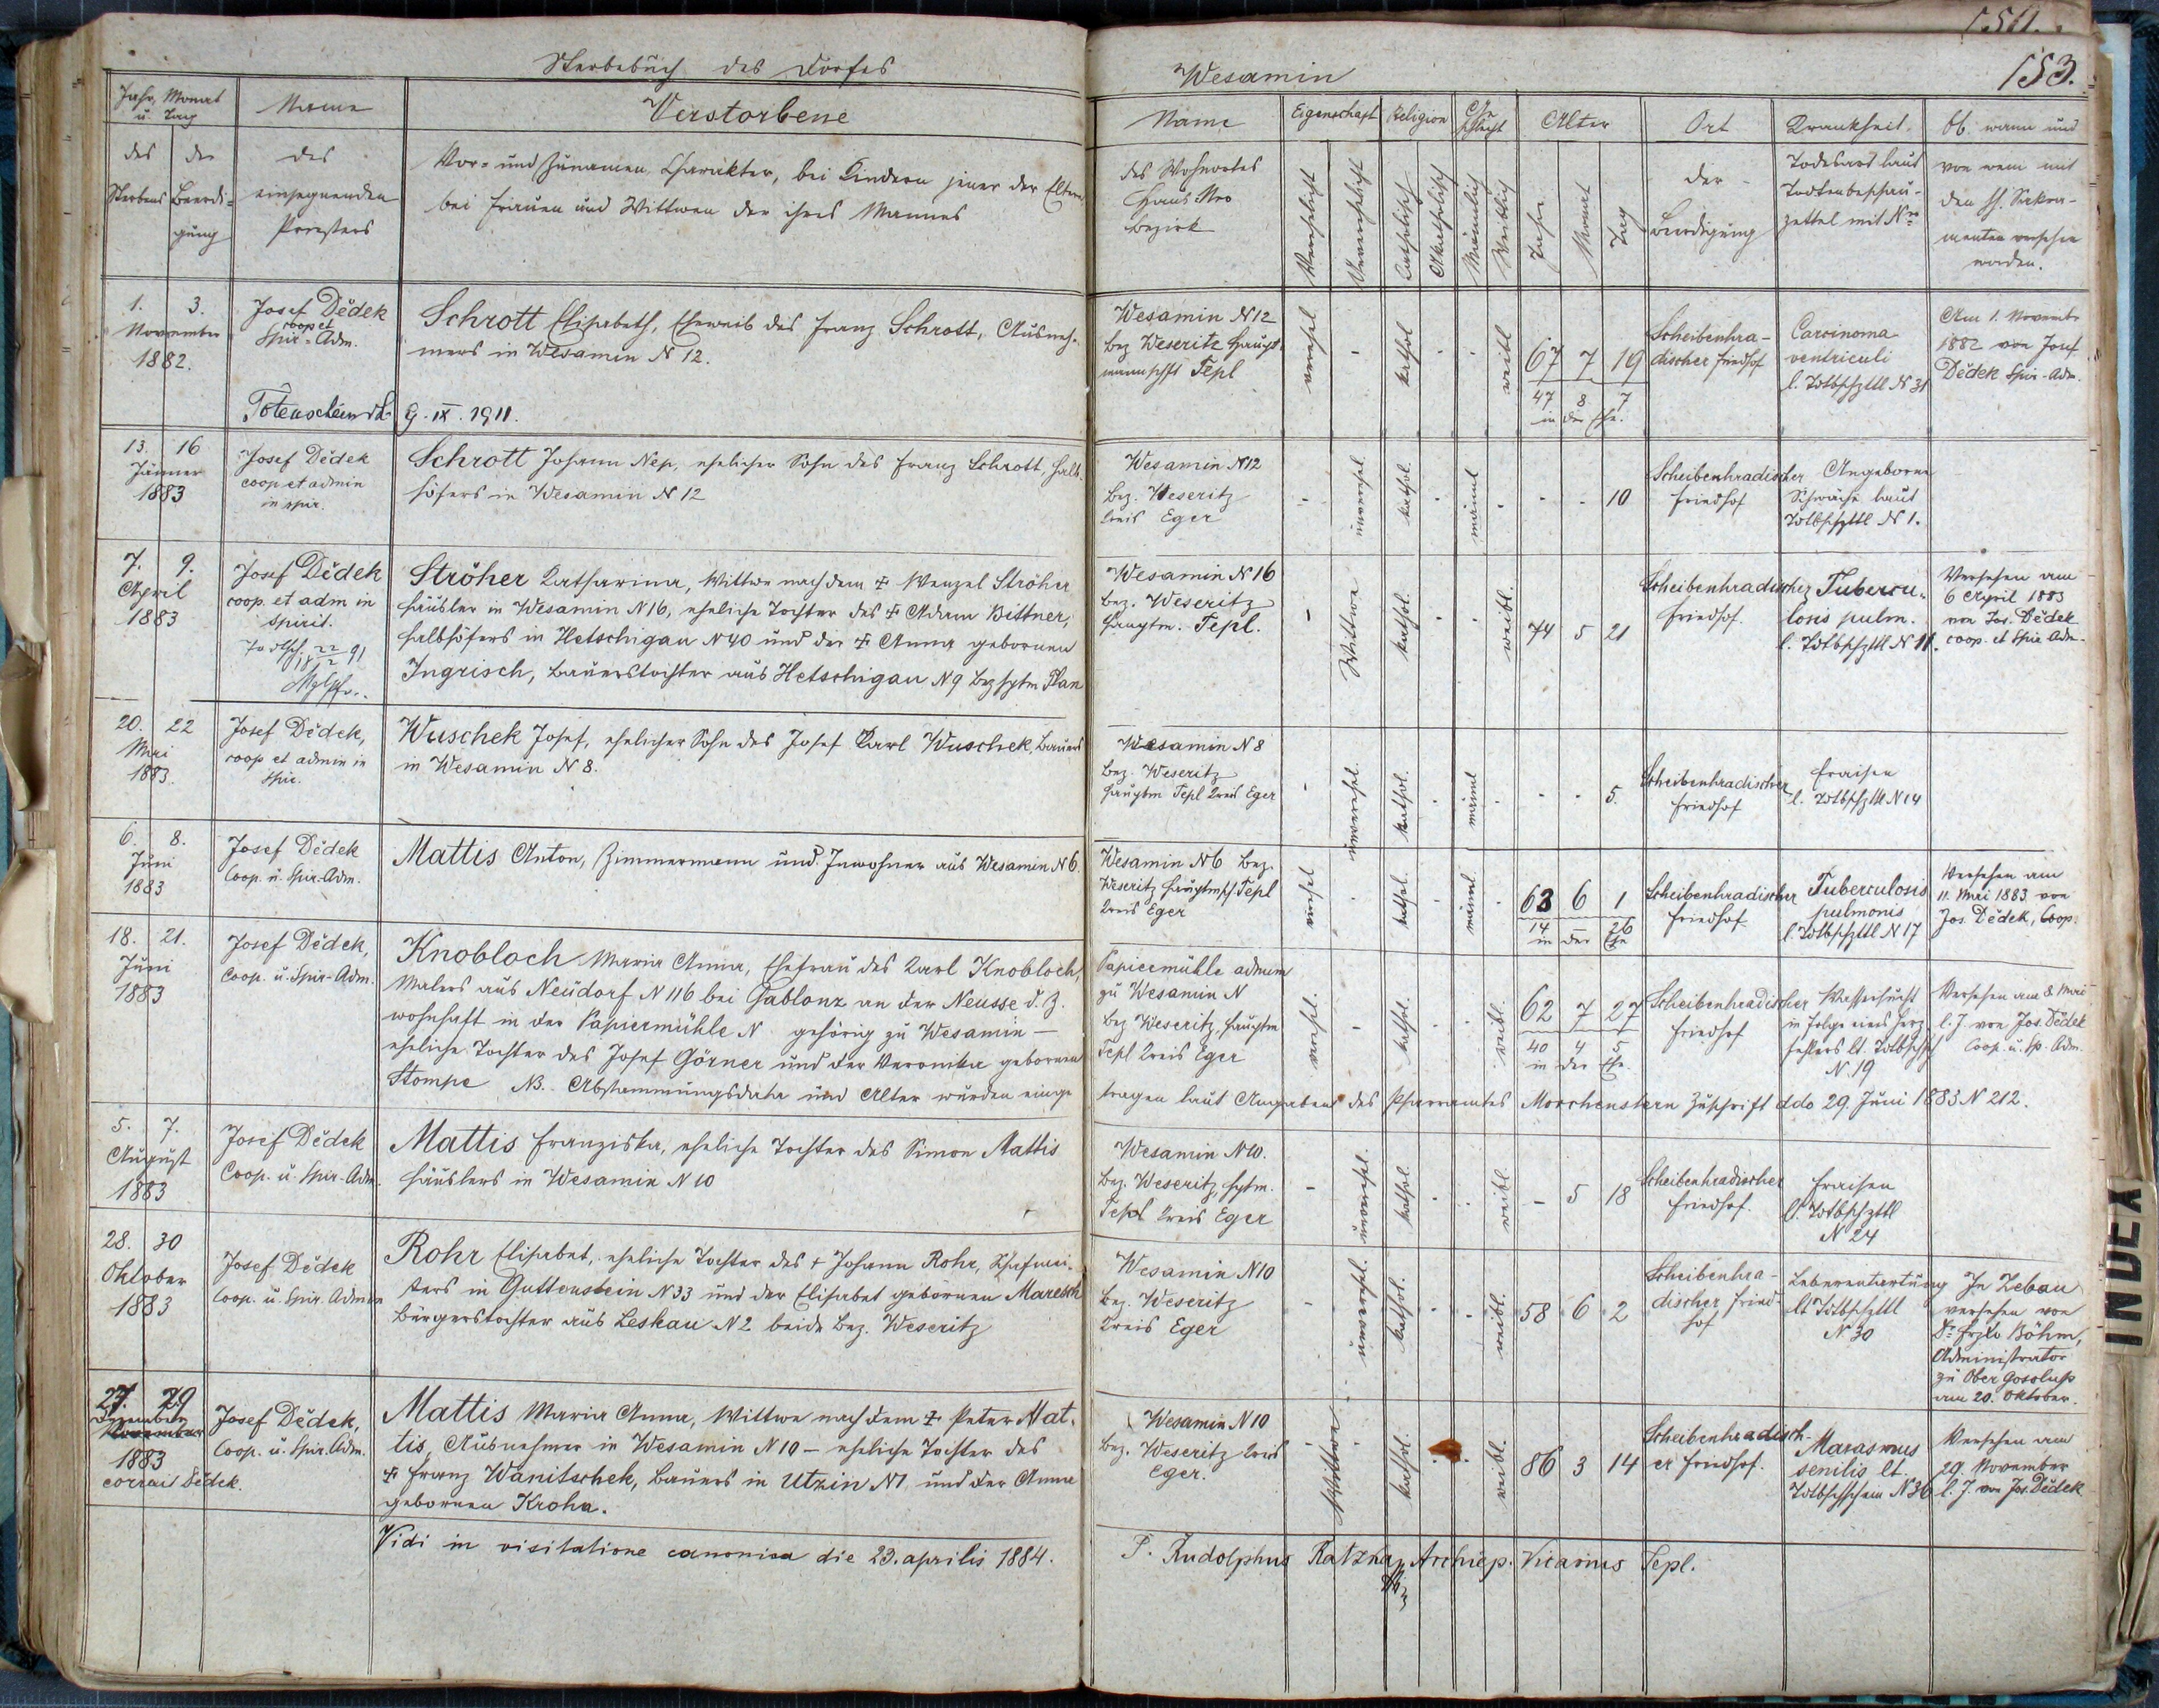 1511.
153.
Sterbebuch des Dorfes Wesamin
Jahr, Monat u. Tag
des Sterbens
der Beerdigung
Name des einsegnenden Priesters
Verstorbene
Vor- und Zunamen, Charakter, bei Kindern jener der Eltern,
bei Frauen und Wittwen der ihres Mannes
Name des Wohnortes Haus Nro Bezirk
Eigenschaft
Verehelicht
Unverehelicht
Religion
Katholisch
Akatholisch
Geschlecht
Männlich
Weiblich
Alter
Jahr
Monat
Tag
Ort der Beerdigung
Krankheit,
Todesart laut
Todtenbeschau-
zettel mit Nro
Ob, wann und
von wem mit
den hl. Sakra-
menten versehen
worden.
1. 3.
November
1882.
Josef Dědek
coop et
Spir-Adm.
Schrott Elisabeth, Eheweib des Franz Schrott, Ausneh-
mers in Wesamin N 12.
Totenschein 9. IX. 1911.
Wesamin N 12
Bez Weseritz Haupt-
mannschft Tepl
verehel
-
kathol
-
-
weibl
67 7 19
47 8 7
in der Ehe.
Scheibenhra-
discher Friedhof
Carcinoma
ventriculi
l. Todtbschzttl N 31
Am 1. Novembr
1882 von Josef
Dědek Spir-Adm.
13. 16
Jänner
1883
Josef Dědek
coop et admin
in spir.
Schrott Johann Nep, ehelicher Sohn des Franz Schrott, Halb-
höfers in Wesamin N 12
Wesamin N 12
Bez. Weseritz
Kreis Eger
-
unverehel.
kathol.
-
männl
-
- - 10
Scheibenhradischer
Friedhof
Angeborne
Schwäche laut
Todtbschzttl N 1.
7. 9.
April
1883
Josef Dědek
coop. et adm in
spirit.
Ströher Katharina, Wittwe nach dem + Wenzel Ströher
Häusler in Wesamin N 16, eheliche Tochter des + Adam Bittner,
Halbhöfers in Hetschigau N 40 und der + Anna gebornen
Ingrisch, Bauerstochter aus Hetschigau N 9 Bez hptm Plan
Wesamin N 16
Bez. Weseritz
Hauptm. Tepl.
-
Wittwe
kathol.
-
-
weibl.
74 5 21
Scheibenhradischer
Friedhof.
Tubercu-
losis pulm.
l. Todtbschzttl N 11.
Versehen am
6 April 1883
von Jos. Dědek
coop. et Spir Adm.
20. 22
Mai
1883.
Josef Dědek,
coop et admin in
spir.
Wuschek Josef, ehelicher Sohn des Josef Karl Wuschek, Bauers
in Wesamin N 8.
Wesamin N 8
Bez. Weseritz
Hauptm Tepl Kreis Eger
-
unverehel.
kathol.
-
männl
-
- - 5.
Scheibenhradischer
Friedhof
Fraisen
l. Todtbschzttl N 14
6. 8.
Juni
1883
Josef Dědek
Coop. u. Spir-Adm.
Mattis Anton, Zimmermann und Inwohner aus Wesamin N 6.
Wesamin N 6 Bez.
Weseritz Hauptmsch Tepl
Kreis Eger
verehel
-
kathol.
-
männl.
-
63 6 1
14 – 26
in der Ehe
Scheibenhradischer
Friedhof
Tuberculosis
pulmonis
l. Todtbschzttl N 17
Versehen am
11. Mai 1883 von
Jos. Dědek, Coop.
18. 21.
Juni
1883
Josef Dědek,
Coop. u. Spir-Adm.
Knobloch Maria Anna, Ehefrau des Karl Knobloch,
Malers aus Neudorf N 116 bei Gablonz an der Neusse d. Z.
wohnhaft in der Papiermühle N gehörig zu Wesamin –
eheliche Tochter des Josef Görner und der Veronika gebornen
Stompe NB. Abstammungsdata und Alter wurden einge
tragen laut Angaben des Pfarramtes Morchenstern Zuschrift ddo 29. Juni 1883 N 212.
Papiermühle
zu Wesamin N
Bez Weseritz, Hauptm
Tepl Kreis Eger
verehel.
-
kathol.
-
-
weibl.
62 7 27
40 4 5
in der Ehe.
Scheibenhradischer
Friedhof
Wassersucht
in Folge eines Herz-
fehlers lt. Todtbschzt
N. 19
Versehen am 8. Mai
l. J. von Jos. Dědek
Coop. u. Sp. Adm.
5. 7.
August
1883
Josef Dědek
Coop. u. Spir-Adm.
Mattis Franziska, eheliche Tochter des Simon Mattis
Häuslers in Wesamin N 10
Wesamin N 10.
Bez. Weseritz, hptm.
Tepl Kreis Eger
-
unverehel.
kathol.
-
-
weibl.
– 5 18
Scheibenhradischer
Friedhof.
Fraisen
l. Todtbschzttl
N 24
28. 30
Oktober
1883
Josef Dědek
Coop. u. Spir. Admin
Rohr Elisabet, eheliche Tochter des + Johann Rohr, Schafmei-
sters in Guttenstein N 33 und der Elisabet gebornen Maresch
Bürgerstochter aus Leskau N 2 beide Bez. Weseritz
Wesamin N 10
Bez. Weseritz
Kreis Eger
-
unverehel.
kathol.
-
-
weibl.
58 6 2
Scheibenhra-
discher Fried-
hof
Leberentartung
lt Todtbschzttl
N 30
In Zebau
versehen von
Böhm,
Administrator
zu Ober Gosolup
am 20. Oktober.
27. 29
Dezember
November
1883
corrait Dědek.
Josef Dědek,
Coop. u. Spir. Adm.
Mattis Maria Anna, Wittwe nach dem + Peter Mat-
tis, Ausnehmer in Wesamin N 10 – eheliche Tochter des
+ Franz Wanitschek, Bauers in Utzin N 1, und der Anna
gebornen Krohn.
Wesamin N 10
Bez. Weseritz Kreis
Eger.
-
Wittwe
kathol.
-
-
weibl.
86 3 14
Scheibenhradisch-
er Friedhof.
Marasmus
senilis lt.
Todtbschschein N 36
Versehen am
29. November
l. J. von Jos. Dědek
Vidi in visitatione canonica die 23. aprilis 1884.
P. Rudolphus Archiep. Vicarius Tepl.
INDEX